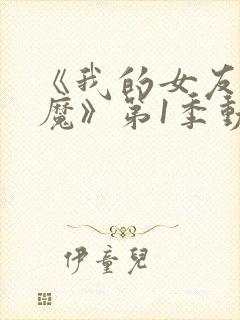 《我的女友
魔》第1季動
伊童兒